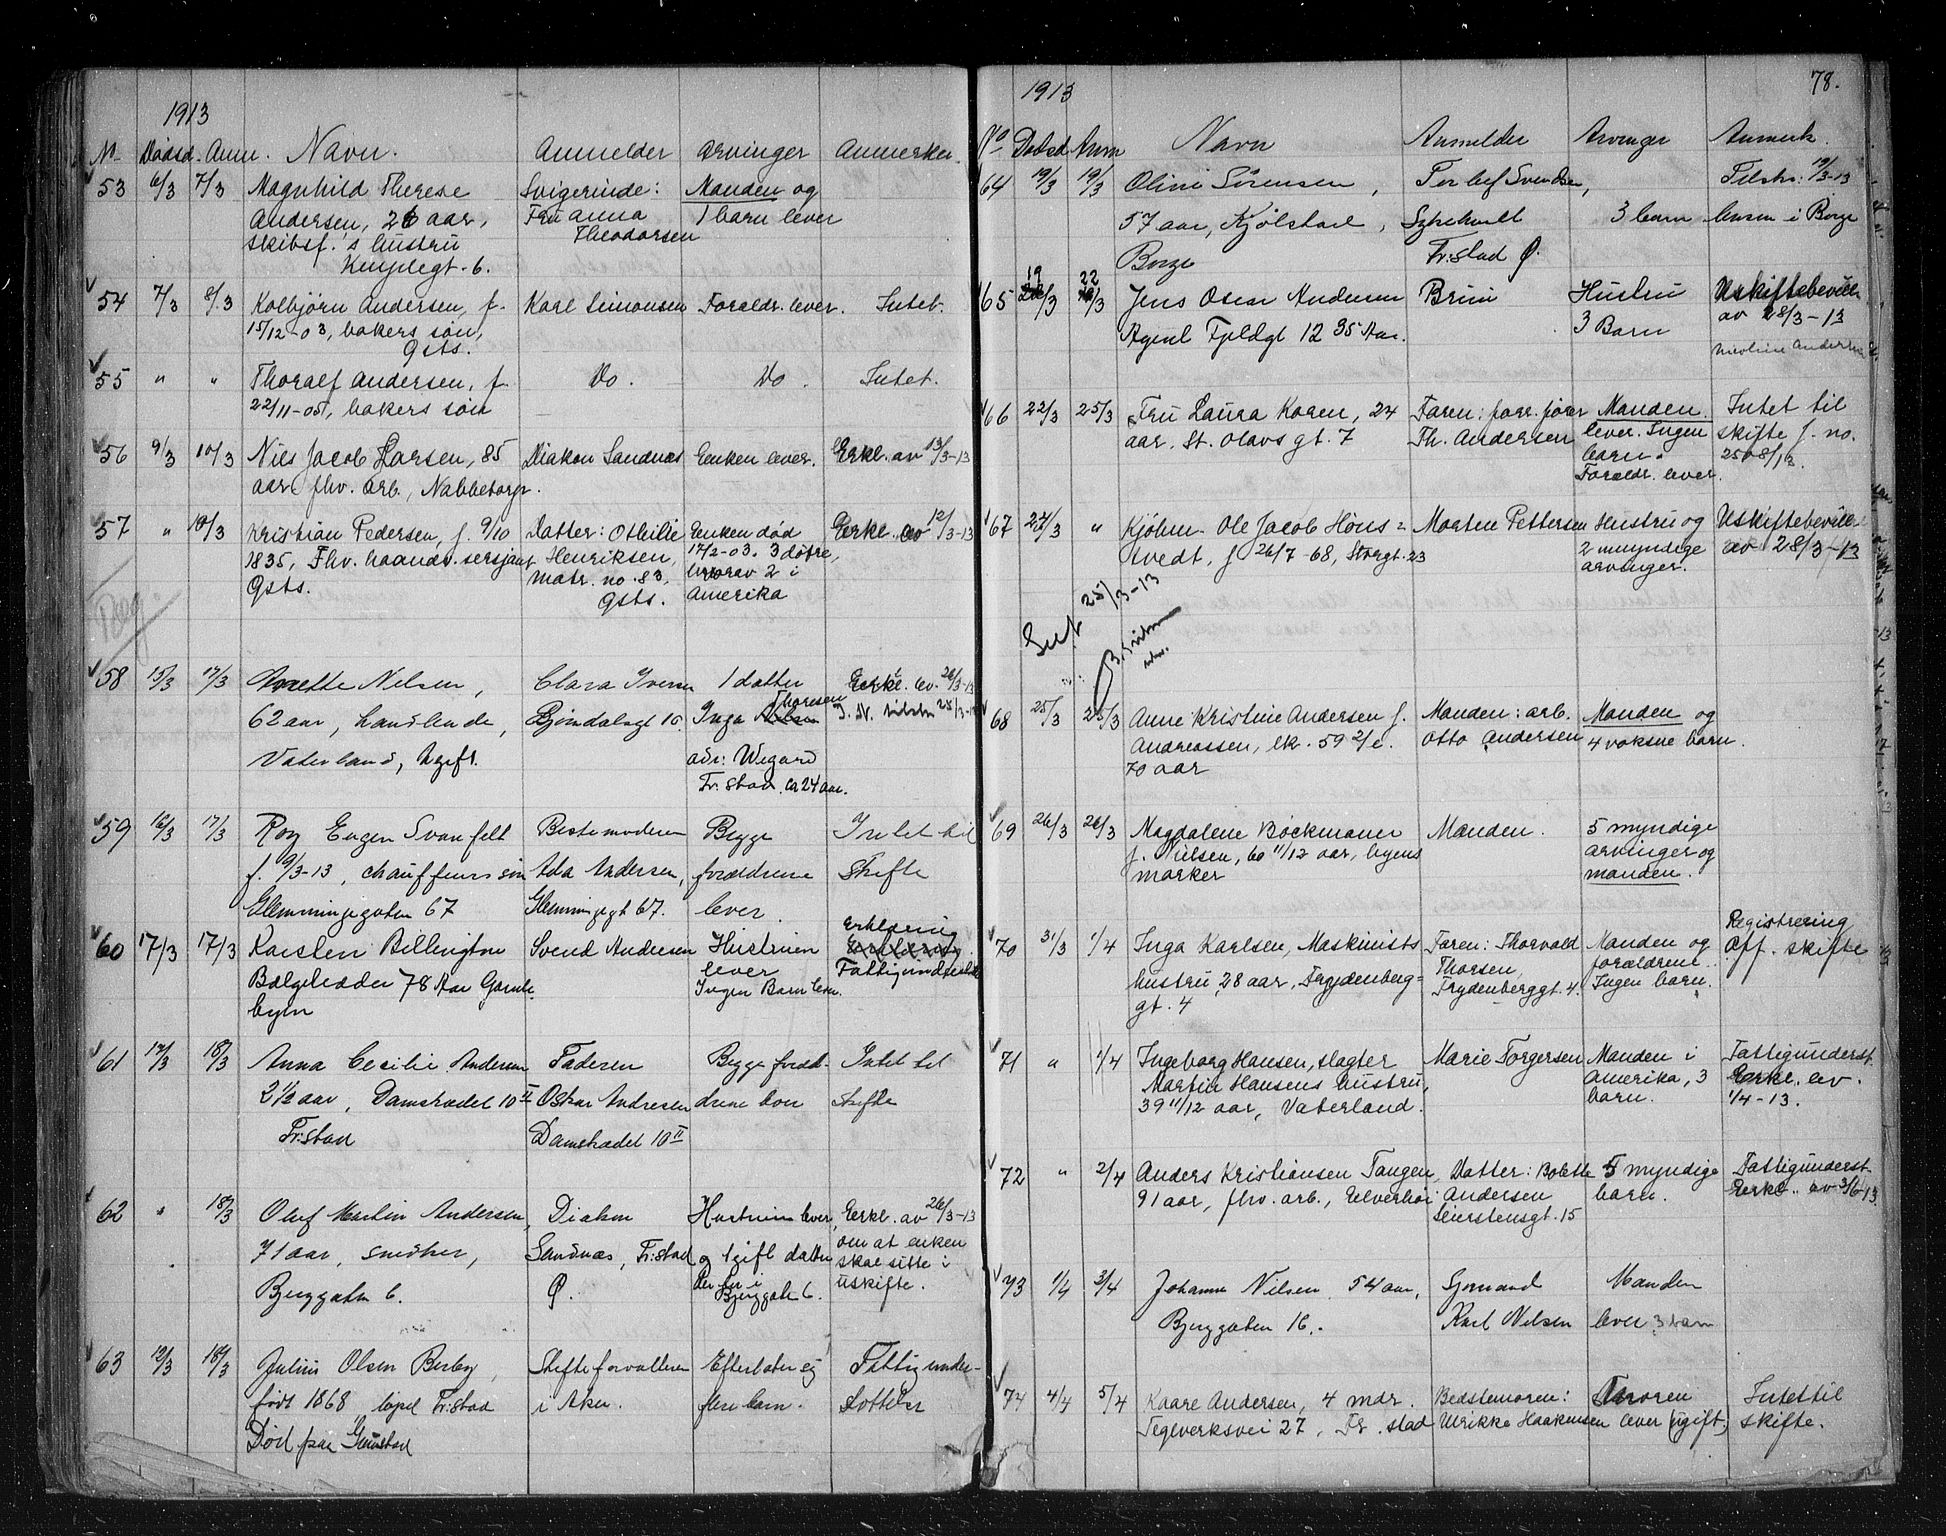 1913
No Dødsd. Anm. Navn. Anmelder Arvinger Anmerkn.
53 6/3 7/3 Magnhild Therese Svigerinde: Manden og
Andersen, 26 aar, Fru Anna 1 barn lever
skibsf.'s hustru Theodorsen
6.
54 7/3 8/3 Kolbjørn Andersen, f. Karl Simonsen Forældr. lever. Intet.
15/12-03, bakers søn,
Gsts.
55 " " Thoralf Andersen, f. Do. Do. Intet.
22/11-05, bakers søn
56 9/3 10/3 Nils Jacob Larsen, 85 Diakon Sandnæs Enken lever. Erkl. av 13/3-13
aar fhv. arb., Nabbetorp.
57 " 10/3 Kristian Pedersen, f. 9/10 Datter: Othilie Enken død Erkl. av 12/3-13
1835, Fhv. haandv. sersjant Henriksen, 17/2-03. 3 døtre,
Gsts. matr. no. 83, hvorav 2 i
Gsts. Amerika
58 15/3 17/3 Anette Nelsen, Clara Iversen 1 datter Erkl. av 26/3-13
Thoresen
62 aar, handlende, Inga
Vaterland, Ugift. adr: Wegard
Fr.stad. ca 24 aar.
59 16/3 17/3 Roy Eugen Svanfelt Bestemoderen Begge Intet til
f. 9/3-13, chauffeurs søn Ada Andersen, forældrene Skifte
Glemmingegaten 67 Glemmingegt 67. lever.
60 17/3 17/3 Karsten Billington Svend Andersen Hustruen Erklæring
Bælgetræder 78 Aar Gamle- lever Fattigunderst.
byen Ingen Barn lever.
61 17/3 18/3 Anna Cecilie Andersen Faderen Begge foræl- Intet til
2 1/2 aar, Damstrædet 10 II Oskar Andresen drene lever Skifte
Fr:stad Damstrædet 10 II
62 " 18/3 Oluf Martin Andersen, Diakon Hustruen lever, Erkl. av 26/3-13
71 aar, snedker, Sandnæs, Fr:stad og 1 gift datter om at enken
Bjerggaten 6. Ø. der bor i skal sitte i
Bjerggate 6. uskifte.
63 12/3 18/3 Julius Olsen Berby, Skifteforvalteren Efterlater ej Fattigunder-
født 1868 i Aker. flere barn.
Død paa Gaustad
1913 78.
No Dødsd Anm Navn Anmelder Arvinger Anmerk.
64 19/3 19/3 Oline Sørensen, Torlef Svendsen, Tilstr: 19/3-13
57 aar, Kjølstad, Sykehuset 3 barn lensm i Borge
Borge Fr:stad Ø.
65 19/3 22/3 Jens Oscar Andersen Bruun Hustru Uskiftebevill.
Agent Fjeldgt 12 35 Aar. 3 Barn av 28/3-13
Nicoline Andersen
66 22/3 25/3 Fru Laura Koren, 24 Faren: forr.fører Manden Intet til
aar, St. Olavs gt. 7 Th. Andersen lever. Ingen skifte f. no.
barn. 250 8/13.
Forældr. lever.
67 24/3 " Kjøbm. Ole Jacob Høns- Morten Pettersen Hustru og Uskiftebevill.
tvedt, f 26/7-68, Storgt. 23 2 umyndige av 28/3-13
arvinger.
25/3-13
68 25/3 25/3 Anne Kristine Andersen f. Manden: arb. Manden og
Andreassen, lk. 59 2/c. Otto Andersen 4 voksne barn.
70 aar
69 26/3 26/3 Magdalene Bøckmann Manden. 5 myndige
f. Nielsen, 60 11/12 aar, byens arvinger og
marker manden.
70 31/3 1/4 Inga Karlsen, Maskinists Faren: Thorvald Manden og Registrering
Off. skifte
hustru, 28 aar, Frydenberg- Thorsen, forældrene.
gt. 4 Frydenberggt. 4. Ingen barn.
71 " 1/4 Ingeborg Hansen, slagter Marie Torgersen Manden i Fattigunderst.
Martin Hansens hustru, Amerika, 3 Erkl. av
39 11/12 aar, Vaterland. barn. 1/4-13.
72 " 2/4 Anders Kristiansen Tangen, Datter: Bolette 5 myndige Fattigunderst.
91 aar, fhv. arb., Elverhøi Andersen barn. Erkl. av 3/6-13
Seierstensgt. 15
73 1/4 3/4 Johanne Nilsen 54 aar, Sømand Manden
Bjerggaten 16. Karl Nilsen lever 3 barn
74 4/4 5/4 Kaare Andersen, 4 mdr. Bedstemoren: Moren Intet til
Teglverksvei 27, Fr.stad Ulrikke Haakensen lever (ugift) skifte.